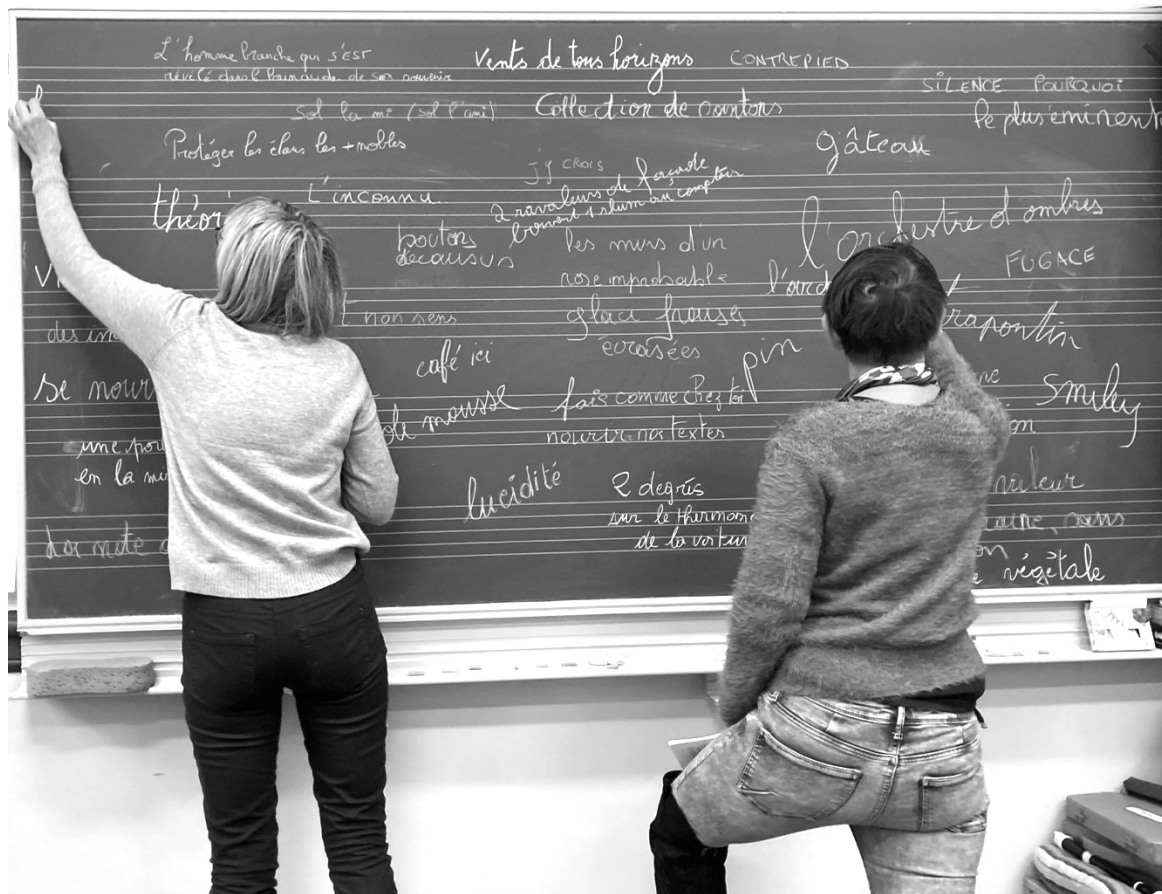 L'homme branche qui s'EST
révélé dans l' de son souvenir
Vents de tous horizons
CONTREPIED
SiLENCE POURQUOi
Sol la mi (sol l'ami)
Collection de santons
le plus éminent
Protéger les élans les + nobles
gâteau
J'y CROIS
2 ravaleurs de façade
boivent 1 rhum au comptoir
théor
L'inconnu
l'orchestre d'ombres
boutons
décousus
les murs d'un
rose improbable
FUGACE
V
l'
des in
non sens
glace fraises
écrasées
rapontin
café ici
pin
se nour
mousse
fais comme chez toi
Smiley
nourrir nos textes
on
une pou
en la mi
lucidité
2 degrés
sur le thermom
de la voitur
La note
sans
végétale